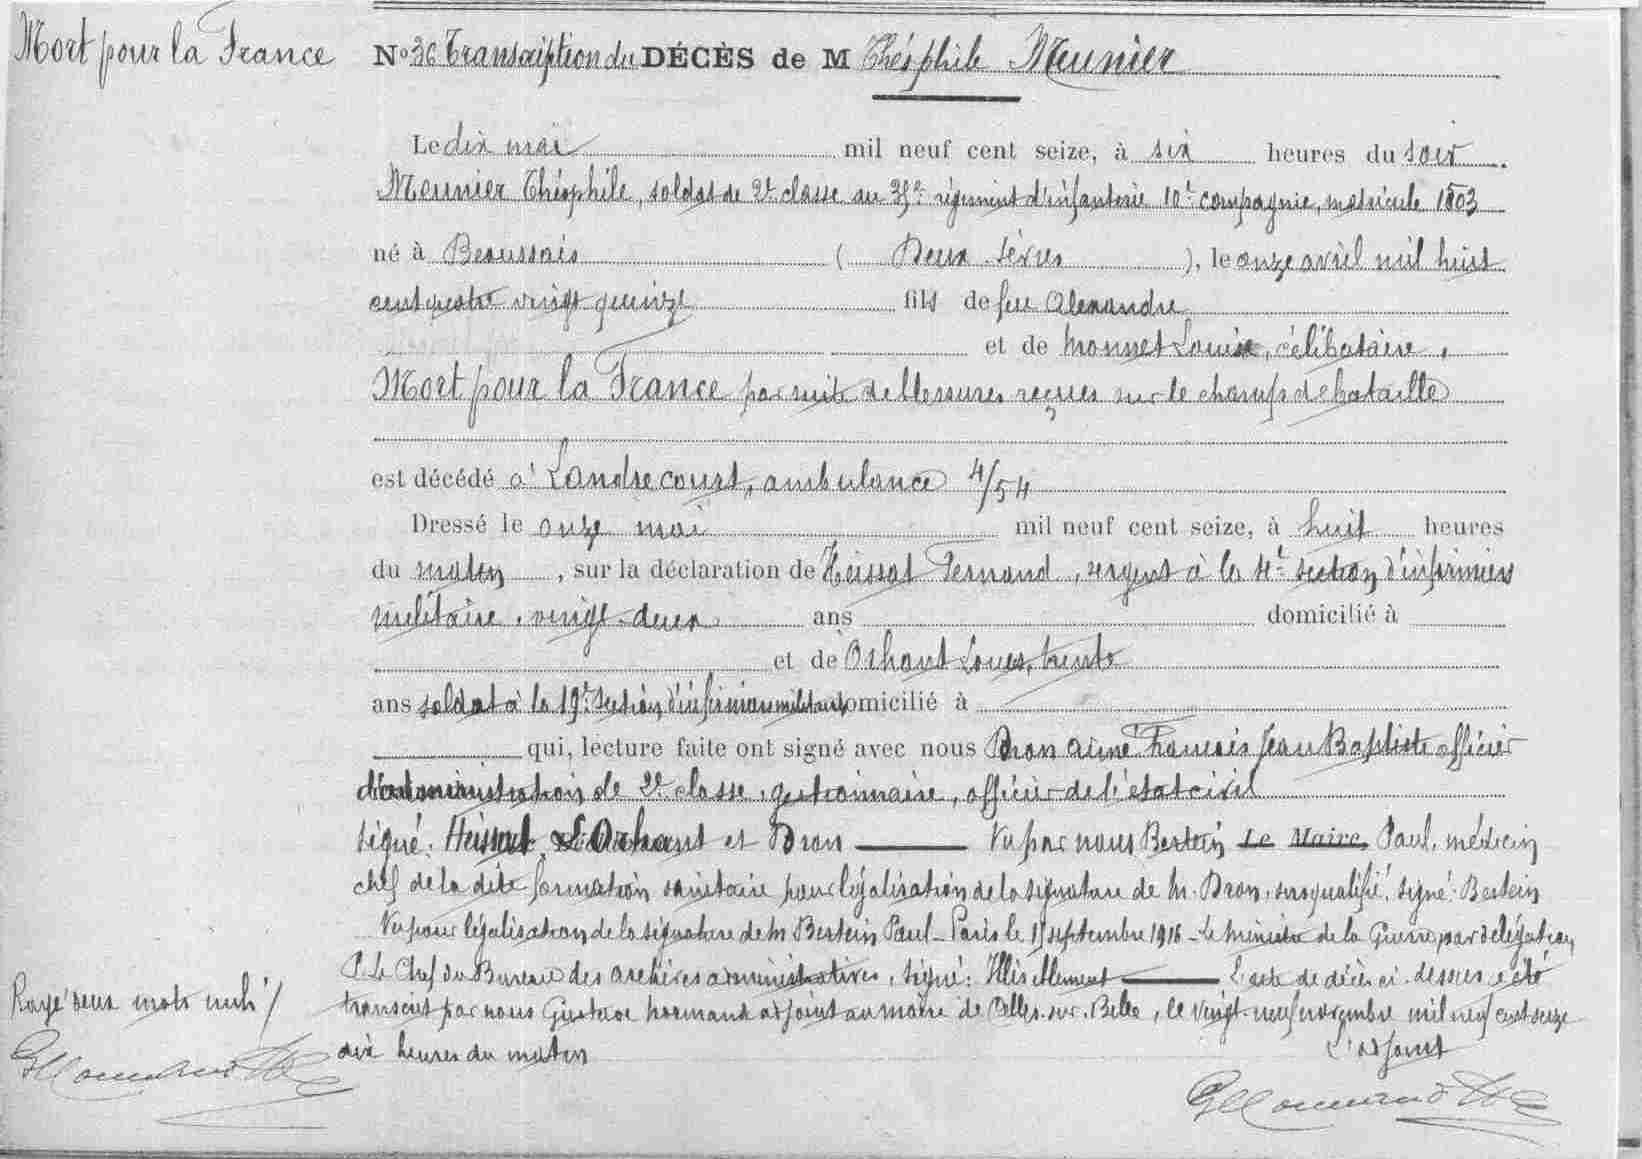 Mort pour la France
N° 36 Transcription du DÉCÈS de M Théophile Meunier
Le dix mai mil neuf cent seize, à six heures du soir.
Meunier Théophile, soldat de 2e classe au régiment d'infanterie 10e compagnie, matricule
né à Beaussais ( Deux Sèvres ), le onze avril mil huit
cent quatre vingt quinze fils de feu Alexandre
et de Monnet Louise, célibataire.
Mort pour la France par suite de blessures reçues sur le champ de bataille
est décédé à Landrecourt, ambulance 4/54
Dressé le onze mai mil neuf cent seize, à huit heures
du matin, sur la déclaration de Heissat Fernand, sergent à la section d'infirmiers
militaire, vingt-deux ans domicilié à
et de Orhant Louis, trente
ans soldat à la 19e section d'infirmiers militaires domicilié à
qui, lecture faite ont signé avec nous Dron Aimé François Jean Baptiste officier
d'administration de 2e classe, gestionnaire, officier de l'état civil
signé: Heissat, Orhant et Dron — Vu par nous Bertein Le Maire, Paul, médecin
chef de la dite formation sanitaire pour légalisation de la signature de M. Dron, susqualifié, signé: Bertein
Vu pour légalisation de la signature de M Bertein Paul - Paris le septembre 1916 - Le ministre de la Guerre, par délégation,
P. Le Chef du Bureau des archives administratives, signé: — L'acte de décès ci-dessus a été
transcrit par nous Gustave adjoint au maire de Celles-sur-Belle, le vingt-neuf novembre mil neuf cent seize
dix heures du matin
L'adjoint
Rayé deux mots nuls /